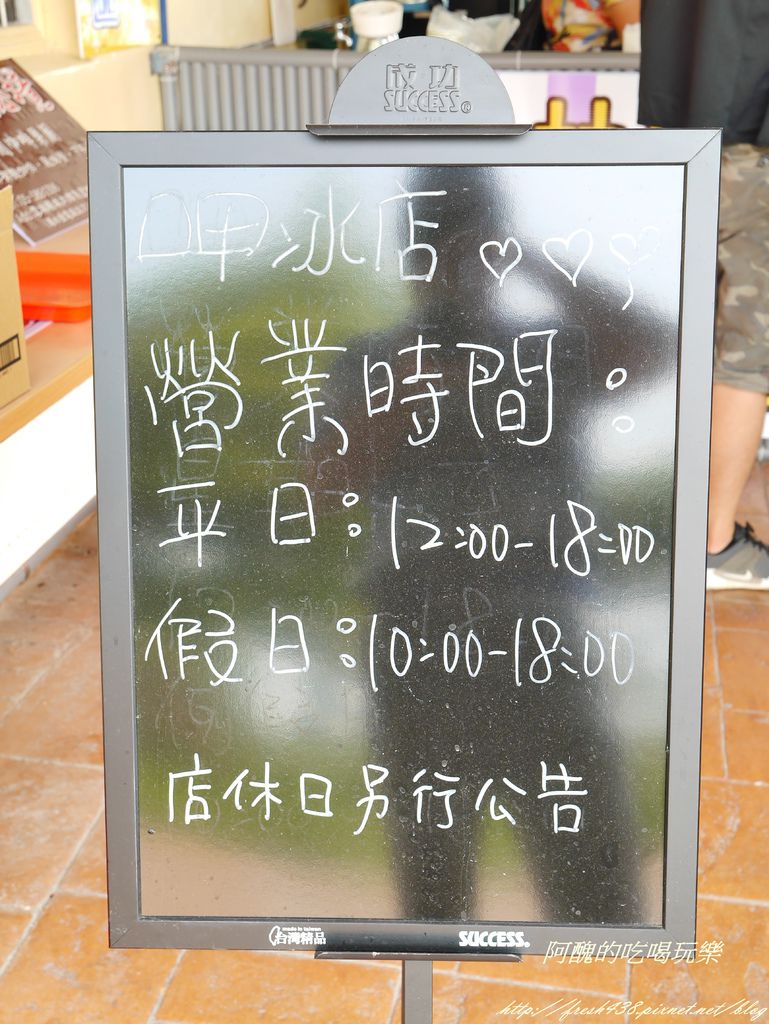 成功
SUCCESS®
呷冰店 ♡♡♡
營業時間：
平日：12:00-18:00
假日：10:00-18:00
店休日另行公告
made in taiwan
台灣精品 SUCCESS®
阿醜的吃喝玩樂
http://fresh438.pixnet.net/blog